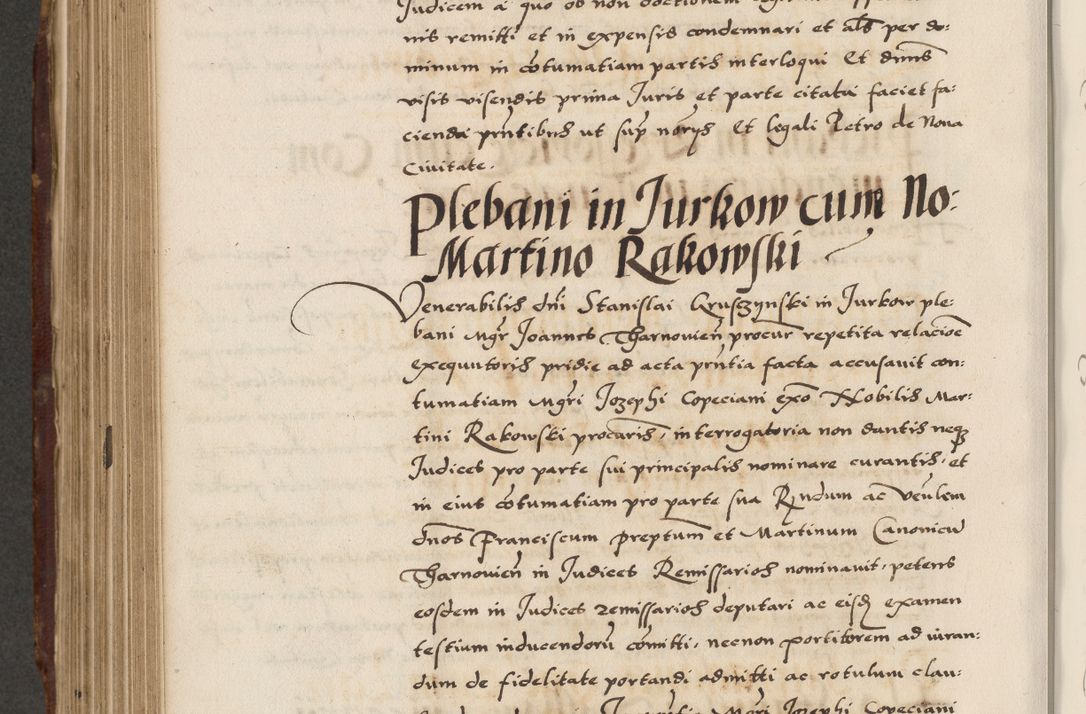 Judicem a quo ob non
nis remitti et in expensis condemnari et als per do:
minum in cõtumatiam partis interloqui Et dnus
visis visendis prima Juris et parte citata faciet fa:
cienda prñtibus ut sup norys Et legali Petro de Nova
Civitate.
Plebani in Jurkow cum No:
Martino Rakowski
Venerabilis dni Stanislai Gruszynski in Jurkow ple:
bani Mgr Joannes Tharnovien procur repetita relacioe
exequutoris pridie ad acta prñtia facta accusavit con:
tumatiam Mgri Jozephi Copeciani exo Nobilis Mar:
tini Rakowski procuris, interrogatoria non dantis neqz
Judices pro parte sui principalis nominare curantis, et
in eius cõtumatiam pro parte sua Rndum ac venlem
dnos Franciscum preptum et Martinum Canonicu
Tharnovien in Judices Remissarios nominavit, petens
eosdem in Judices remissarios deputari ac eisd examen
testium inducendoru comitti, necnon portitorem ad iuran:
dum de fidelitate portandi admitti ac rotulum clau:
Mgri Jozephi Copeciani